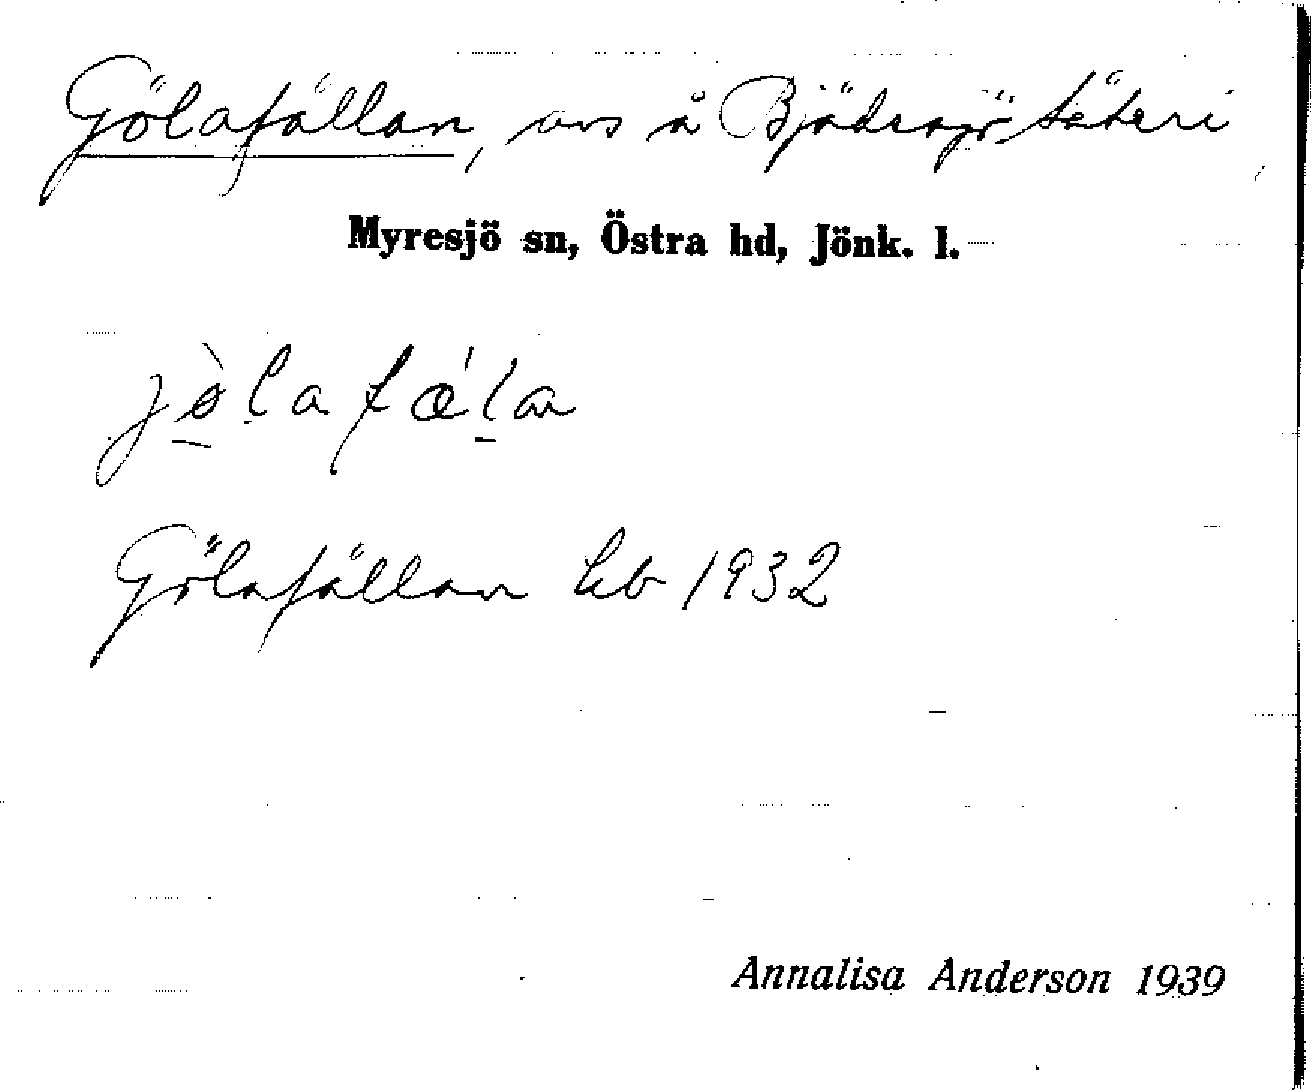 Gölafällan, avs å Bjädesjö säteri
Myresjö sn, Östra hd, Jönk. l.
jø̀lafǽlan
Gölafällan kb 1932
Annalisa Anderson 1939